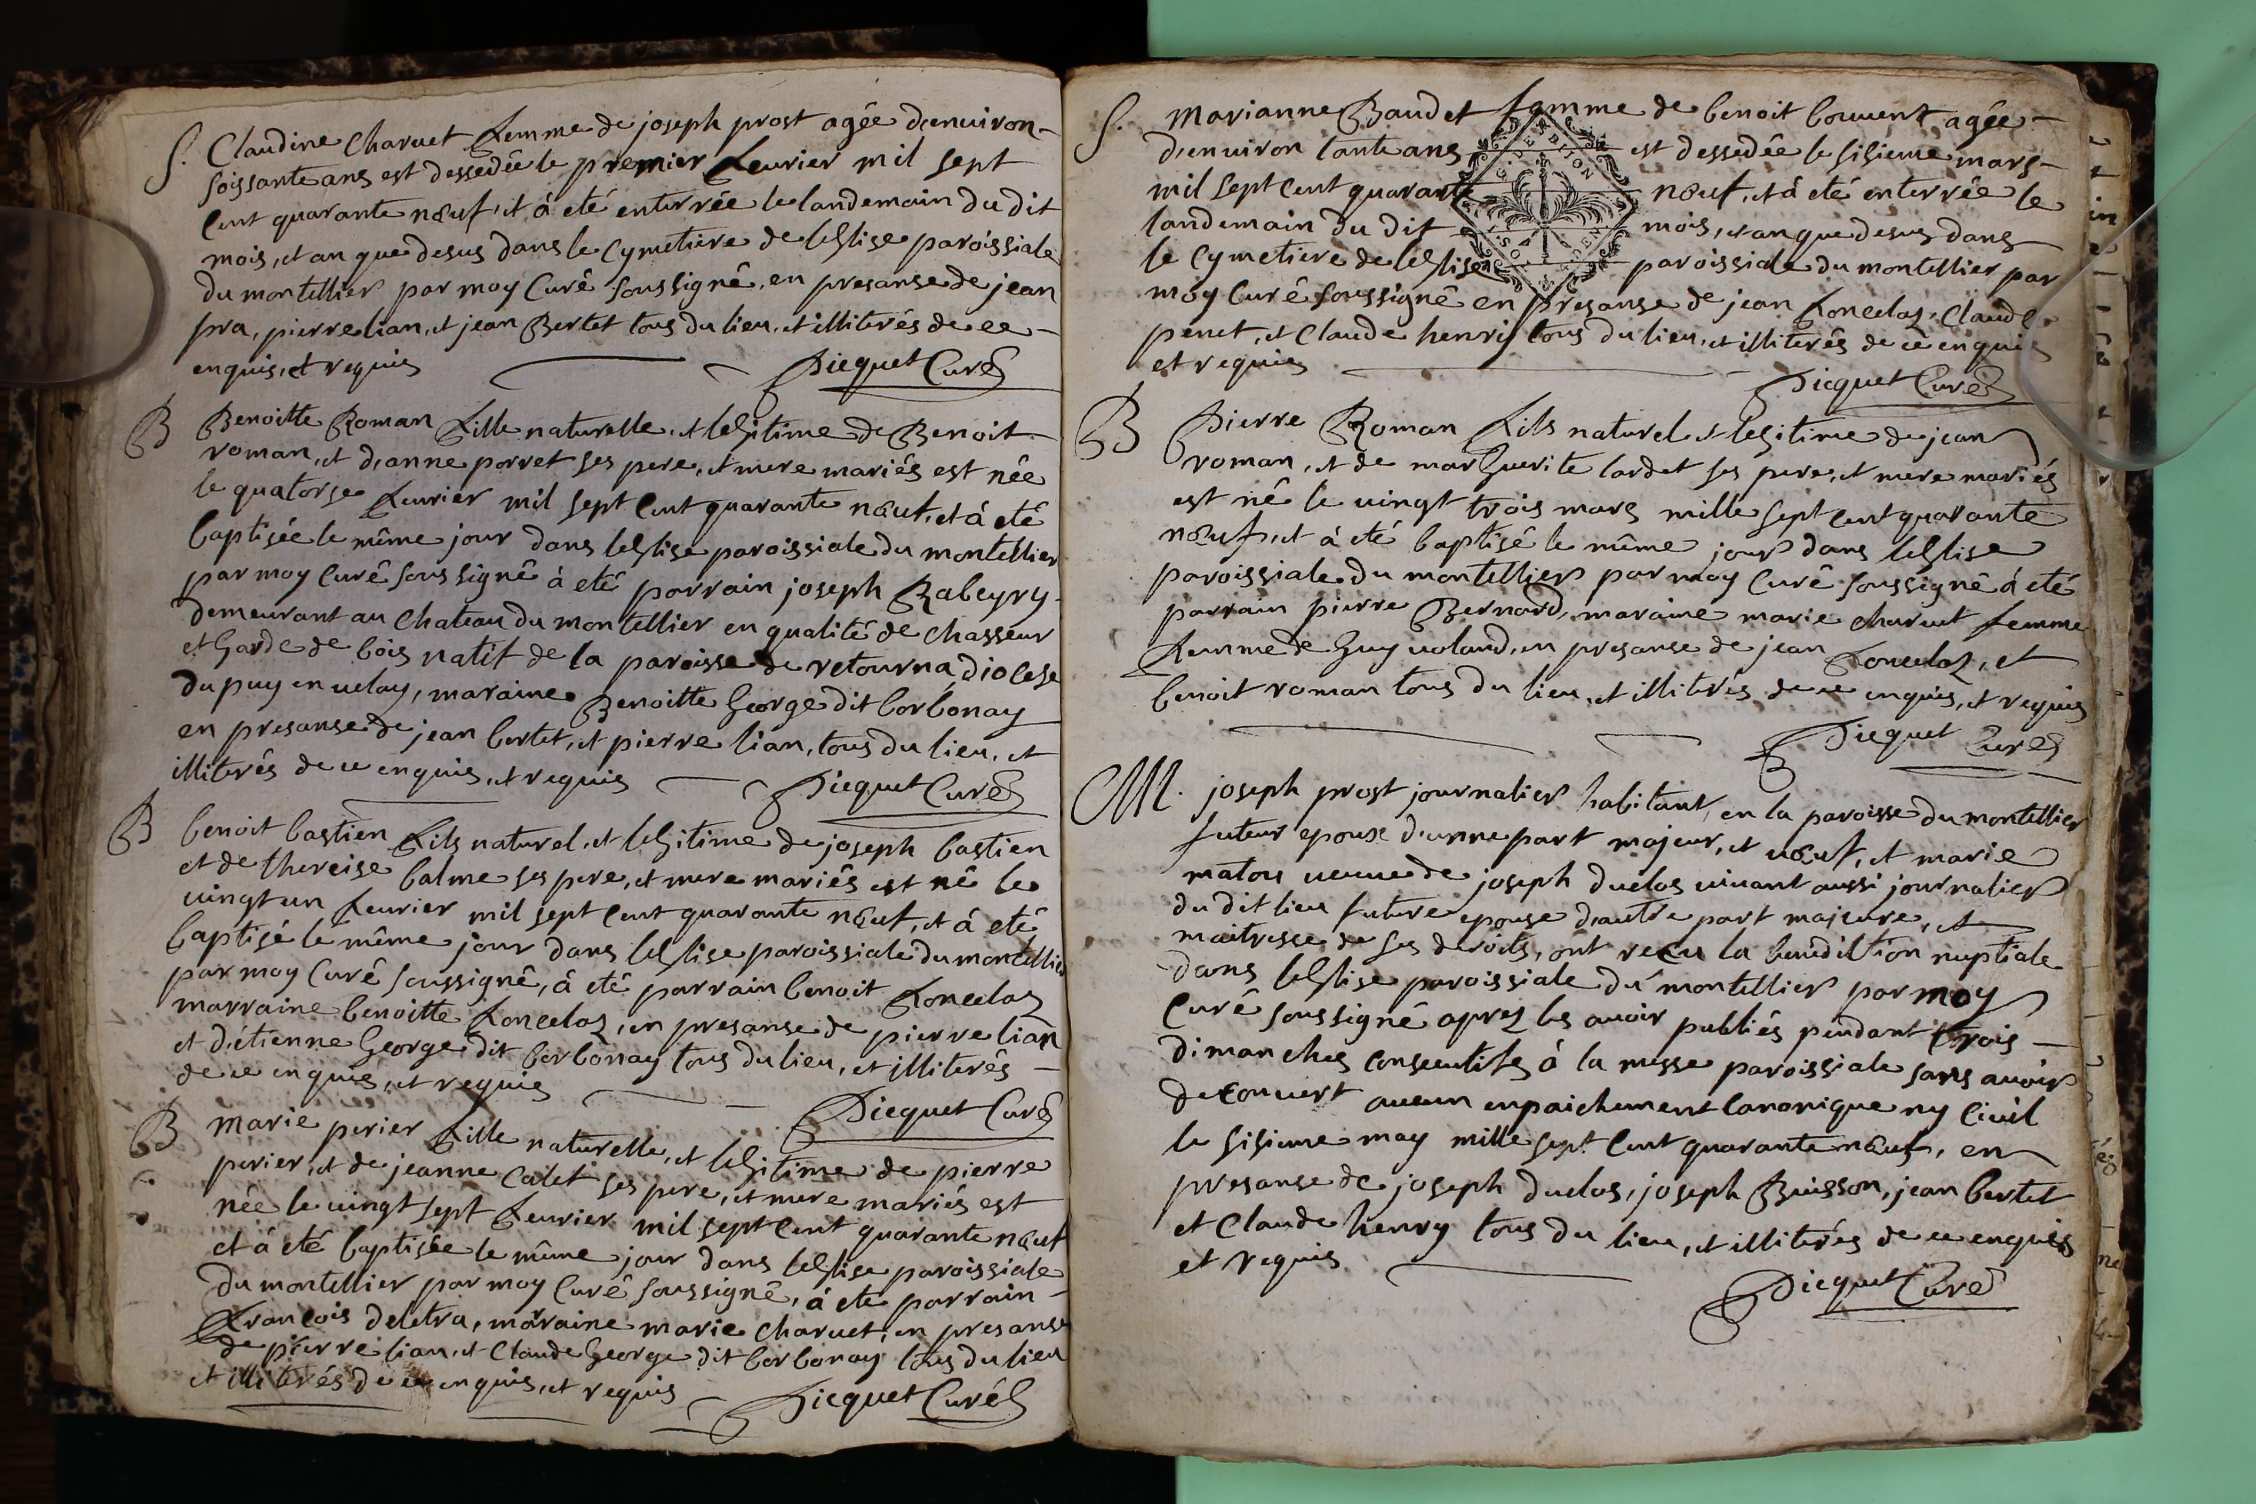 S. Claudine Charvet femme de joseph prost agée d'environ
soissante ans est dessedée le premier feurier mil sept
cent quarante nœuf, et à eté enterrée le landemain du dit
mois, et an que desus dans le Cymetiere de leglise paroissiale
du montellier par moy Curé soussigné, en presanse de jean
pra, pierre lian, et jean Bertet tous du lieu, et illiterés de ce
enquis, et requis
Picquet Curé
B Benoitte Roman fille naturelle, et legitime de Benoit
roman, et d'anne porret ses pere, et mere mariés est née
le quatorse feurier mil sept cent quarante nœuf, et à eté
baptisée le même jour dans leglise paroissiale du montellier
par moy Curé soussigné à eté parrain joseph Rabeyry
demeurant au Chateau du montellier en qualité de Chasseur
et Garde de bois natif de la paroisse de retourna diocese
du puy en uelay, maraine Benoitte George dit borbonay
en presanse de jean bertet, et pierre lian, tous du lieu, et
illiterés de ce enquis, et requis
Picquet Curé
B benoit bastien fils naturel, et legitime de joseph bastien
et de thereise balme ses pere, et mere mariés est né le
uingt un feurier mil sept cent quarante nœuf, et à eté
baptisé le même jour dans leglise paroissiale du montellier
par moy Curé soussigné, à eté parrain benoit foncelas
marraine benoitte foncelas, en presanse de pierre lian
et d'étienne George dit borbonay tous du lieu, et illiterés
de ce enquis, et requis
Picquet Curé
B marie perier fille naturelle, et legitime de pierre
perier, et de jeanne Calet ses pere, et mere mariés est
née le uingt sept feurier mil sept cent quarante nœuf
et à eté baptisée le même jour dans leglise paroissiale
du montellier par moy Curé soussigné, à eté parrain
françois deletra, maraine marie Charuet, en presanse
de pierre lian, et Claude George dit borbonay tous du lieu
et illiterés de ce enquis, et requis
Picquet Curé
S. Marianne Baudet famme de benoit bouuent agée
d'enuiron tante ans est dessedée le sisieme mars
mil sept cent quarante nœuf, et à eté enterrée le
landemain du dit mois, et an que desus dans
le Cymetiere de leglise paroissiale du montellier par
moy Curé soussigné en presanse de jean foncelas, Claude
penet, et Claude henry tous du lieu, et illiterés de ce enquis
et requis
Picquet Curé
B Pierre Roman fils naturel et legitime de jean
roman, et de marguerite lardet ses pere, et mere mariés
est né le uingt trois mars mille sept cent quarante
nœuf, et à eté baptisé le même jour dans leglise
paroissiale du montellier par moy Curé soussigné à eté
parrain pierre Bernard, maraine marie charuet femme
femme de Guy uoland, en presanse de jean foncelas, et
benoit roman tous du lieu, et illiterés de ce enquis, et requis
Picquet Curé
M. joseph prost journalier habitant en la paroisse du montellier
futeur epoux d'unne part majeur, et uœuf, et marie
matou ueuue de joseph duclos uiuant aussi journalier
du dit lieu future epouse d'autre part majeure, et
maitresse de ses deroits, ont recu la benediction nuptiale
dans leglise paroissiale du montellier par moy
Curé soussigné aprez les auoir publiés pendant trois
dimanches consecutifs à la messe paroissiale sans auoir
decouuert aucun enpaichement Canonique ny Ciuil
le sisieme may mille sept cent quarante nœuf, en
presanse de joseph duclos, joseph Buisson, jean bertet
et Claude henry tous du lieu, et illiterés de ce enquis
et requis
Picquet Curé